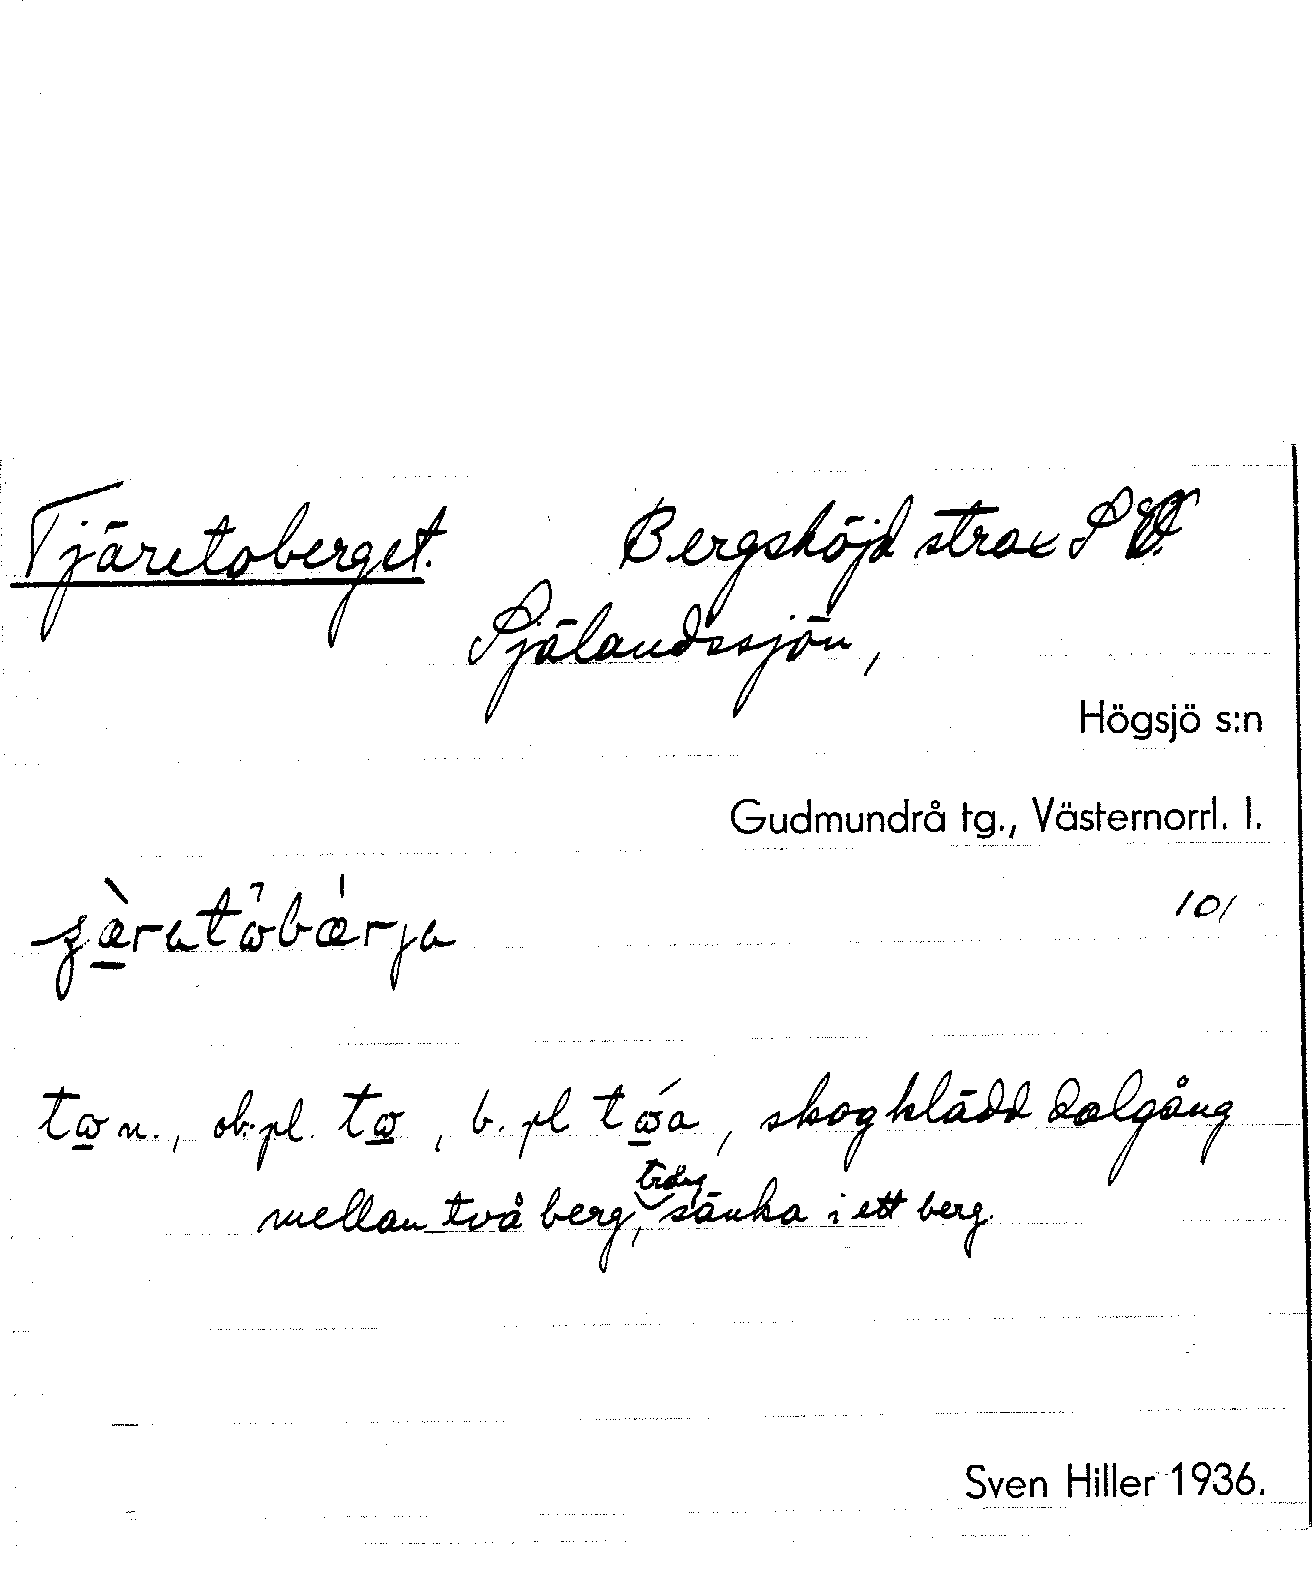 Tjäretoberget. Bergshöjd strax S V.
Själandssjön,
Högsjö s:n
Gudmundrå tg., Västernorrl. l.
101
tω n., ob. pl. tω, b. pl tώa, skogklädd dalgång
trång
mellan två berg, sänka i ett berg.
Sven Hiller 1936.